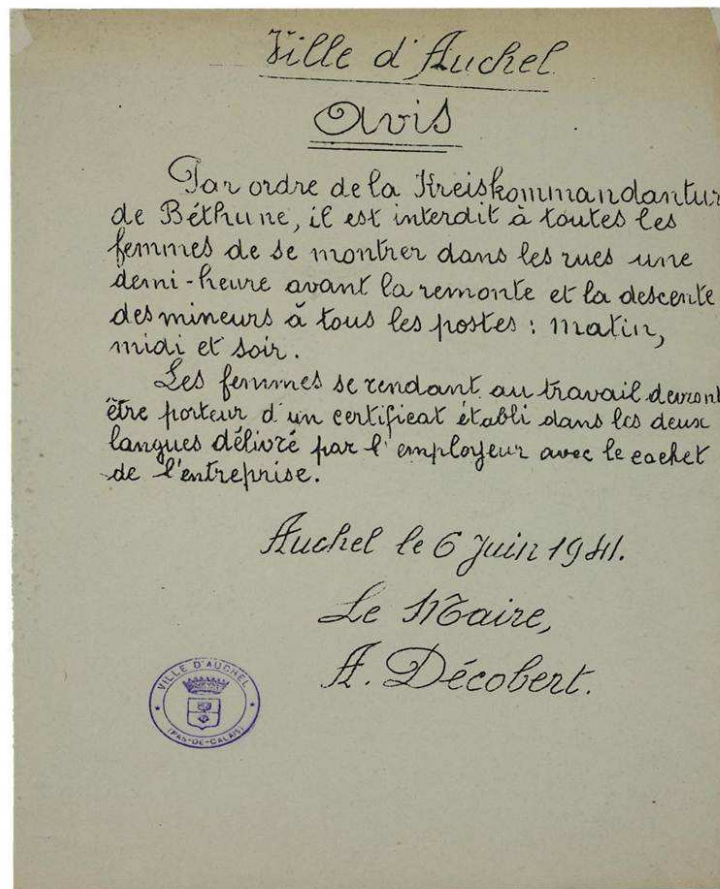 Ville d'Auchel
Avis
Par ordre de la Kreiskommandantur
de Béthune, il est interdit à toutes les
femmes de se montrer dans les rues une
demi-heure avant la remonte et la descente
des mineurs à tous les postes : matin,
midi et soir.
Les femmes se rendant au travail devront
être porteur d'un certificat établi dans les deux
langues délivré par l'employeur avec le cachet
de l'entreprise.
Auchel le 6 Juin 1941.
Le Maire,
A. Décobert.
VILLE D'AUCHEL
(PAS-DE-CALAIS)